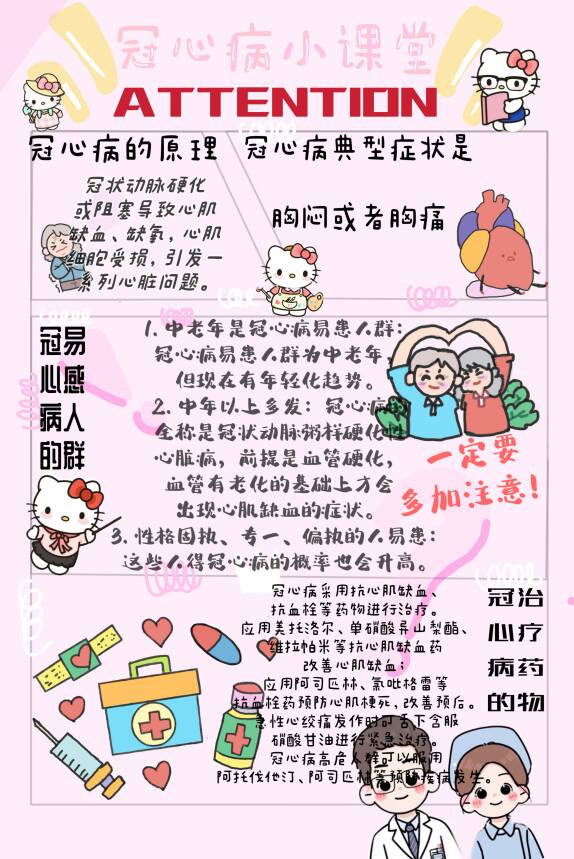 冠心病小课堂
ATTENTION
冠心病的原理
冠状动脉硬化
或阻塞导致心肌
缺血、缺氧，心肌
细胞受损，引发一
系列心脏问题。
冠心病典型症状是
胸闷或者胸痛
冠心病的
易感人群
1. 中老年是冠心病易患人群：
冠心病易患人群为中老年，
但现在有年轻化趋势。
2. 中年以上多发：冠心病的
全称是冠状动脉粥样硬化性
心脏病，前提是血管硬化，
血管有老化的基础上才会
出现心肌缺血的症状。
3. 性格固执、专一、偏执的人易患：
这些人得冠心病的概率也会升高。
一定要
多加注意！
冠心病的
治疗药物
冠心病采用抗心肌缺血、
抗血栓等药物进行治疗。
应用美托洛尔、单硝酸异山梨酯、
维拉帕米等抗心肌缺血药
改善心肌缺血；
应用阿司匹林、氯吡格雷等
抗血栓药预防心肌梗死，改善预后。
急性心绞痛发作时可舌下含服
硝酸甘油进行紧急治疗。
冠心病高危人群可以服用
阿托伐他汀、阿司匹林等预防疾病发生。